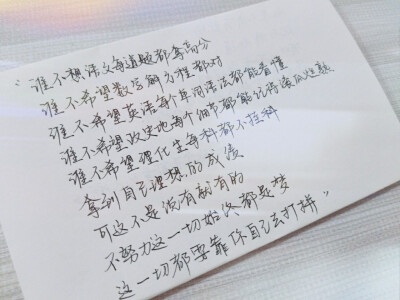 “谁不想语文每道题都拿高分
谁不希望数学解方程都对
谁不希望英语每个单词语法都能看懂
谁不希望政史地每个细节都能记得滚瓜烂熟
谁不希望理化生每科都不挂科
拿到自己理想的成绩
可这不是说有就有的
不努力这一切始终都是梦
这一切都要靠你自己去打拼”